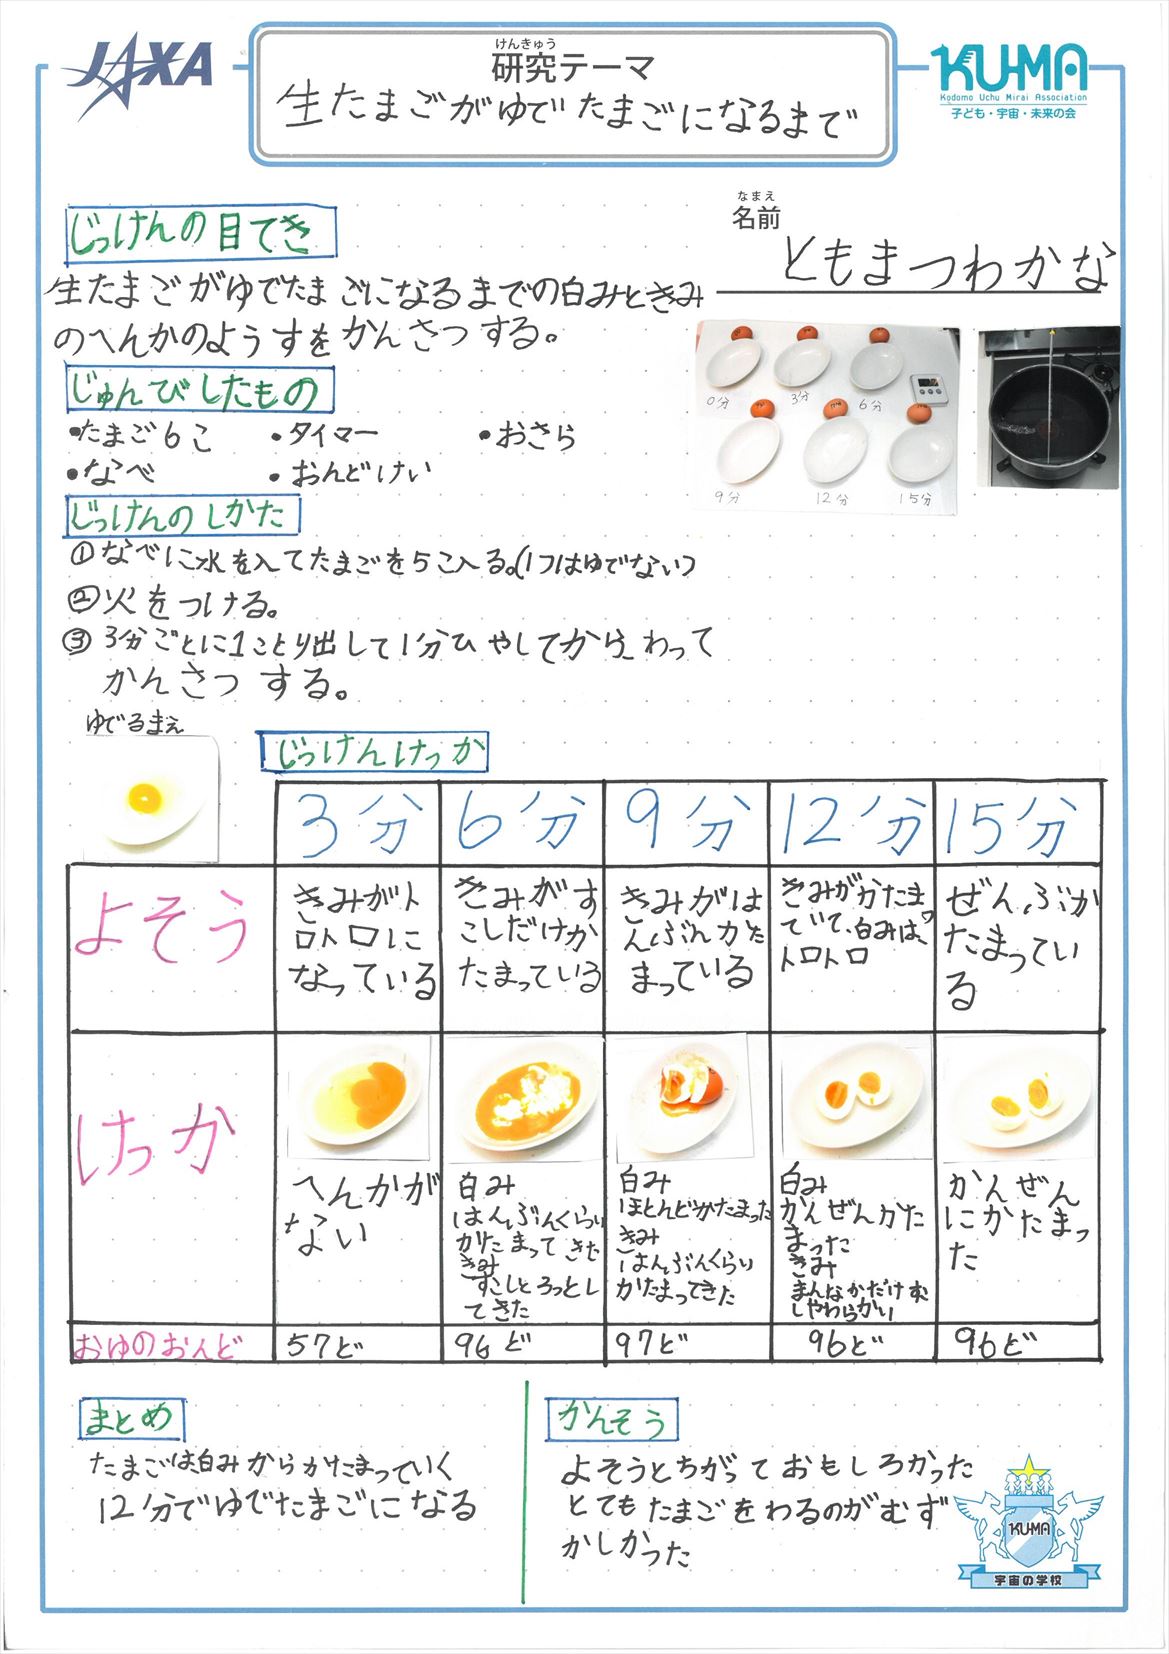 JAXA
けんきゅう
研究テーマ
生たまごがゆでたまごになるまで
KU-MA
Kodomo Uchu Mirai Association
子ども・宇宙・未来の会
なまえ
名前
ともまつわかな
じっけんの目てき
生たまごがゆでたまごになるまでの白みときみ
のへんかのようすをかんさつする。
じゅんびしたもの
・たまご6こ ・タイマー ・おさら
・なべ ・おんどけい
0分 3分 6分
9分 12分 15分
じっけんのしかた
①なべに水を入てたまごを5こ入る。(1つはゆでない)
②火をつける。
③3分ごとに1ことり出して1分ひやしてから、わって
かんさつする。
ゆでるまえ
じっけんけっか
3分 6分 9分 12分 15分
よそう
きみがト
ロトロに
なっている
きみがす
こしだけか
たまっている
きみがは
んぶんかた
まっている
きみがかたま
っていて、白みは、
トロトロ
ぜんぶか
たまってい
る
けっか
へんかが
ない
白み
はんぶんくらい
かたまってきた
きみ
すこしとろっとし
てきた
白み
ほとんどかたまった
きみ
はんぶんくらい
かたまってきた
白み
かんぜんかた
まった
きみ
まんなかだけすこ
しやわらかい
かんぜん
にかたまっ
た
おゆのおんど 57ど 96ど 97ど 96ど 96ど
まとめ
たまごは白みからかたまっていく
12分でゆでたまごになる
かんそう
よそうとちがっておもしろかった
とてもたまごをわるのがむず
かしかった
KU-MA
宇宙の学校